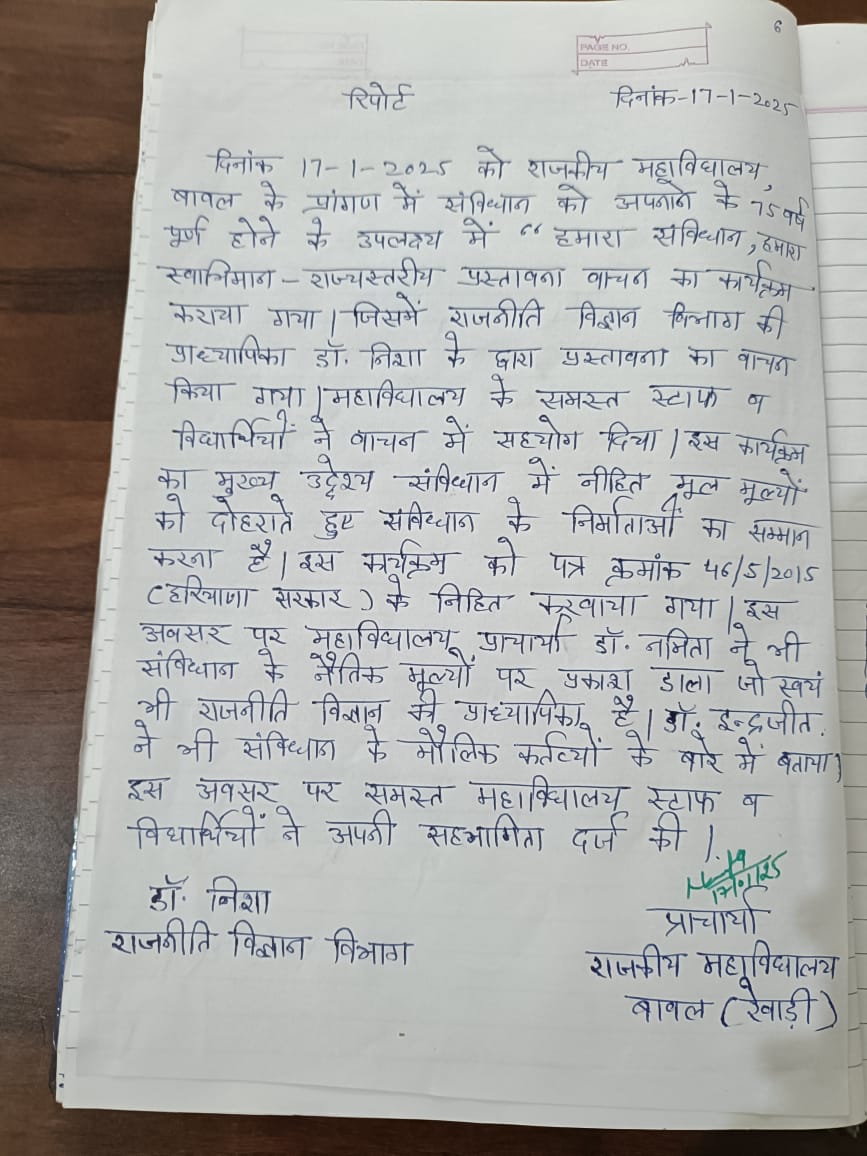 6
PAGE NO.
DATE
रिपोर्ट दिनांक-17-1-2025
दिनांक 17-1-2025 को राजकीय महाविधालय,
बावल के प्रांगण में संविधान को अपनाने के 75 वर्ष
पूर्ण होने के उपलक्ष्य में “ हमारा संविधान, हमारा
स्वाभिमान – राज्यस्तरीय प्रस्तावना वाचन का कार्यक्रम
कराया गया | जिसमें राजनीति विज्ञान विभाग की
प्राध्यापिका डॉ. निशा के द्वारा प्रस्तावना का वाचन
किया गया | महाविधालय के समस्त स्टाफ व
विधार्थियों ने वाचन में सहयोग दिया | इस कार्यक्रम
का मुख्य उद्देश्य संविधान में नीहित मूल मूल्यों
को दोहराते हुए संविधान के निर्माताओं का सम्मान
करना है | इस कार्यक्रम को पत्र क्रमांक 46/5/2015
(हरियाणा सरकार) के निहित करवाया गया | इस
अवसर पर महाविधालय प्राचार्या डॉ. नमिता ने भी
संविधान के नैतिक मूल्यों पर प्रकाश डाला जो स्वयं
भी राजनीति विज्ञान की प्राध्यापिका है | डॉ. इन्द्रजीत
ने भी संविधान के मौलिक कर्तव्यों के बारे में बताया |
इस अवसर पर समस्त महाविधालय स्टाफ व
विधार्थियों ने अपनी सहभागिता दर्ज की |
17/01/25
डॉ. निशा
प्राचार्या
राजनीति विज्ञान विभाग
राजकीय महाविधालय
बावल (रेवाड़ी)